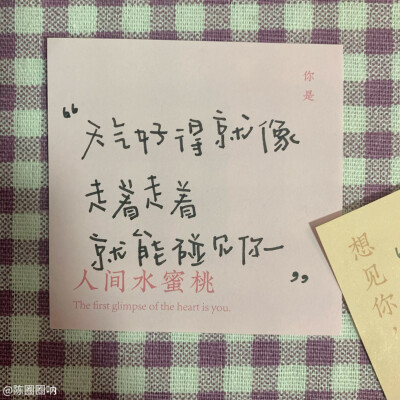 你是
“天气好得就像
走着走着
就能碰见你一
人间水蜜桃”
The first glimpse of the heart is you.
想见你，
@陈圈圈呐